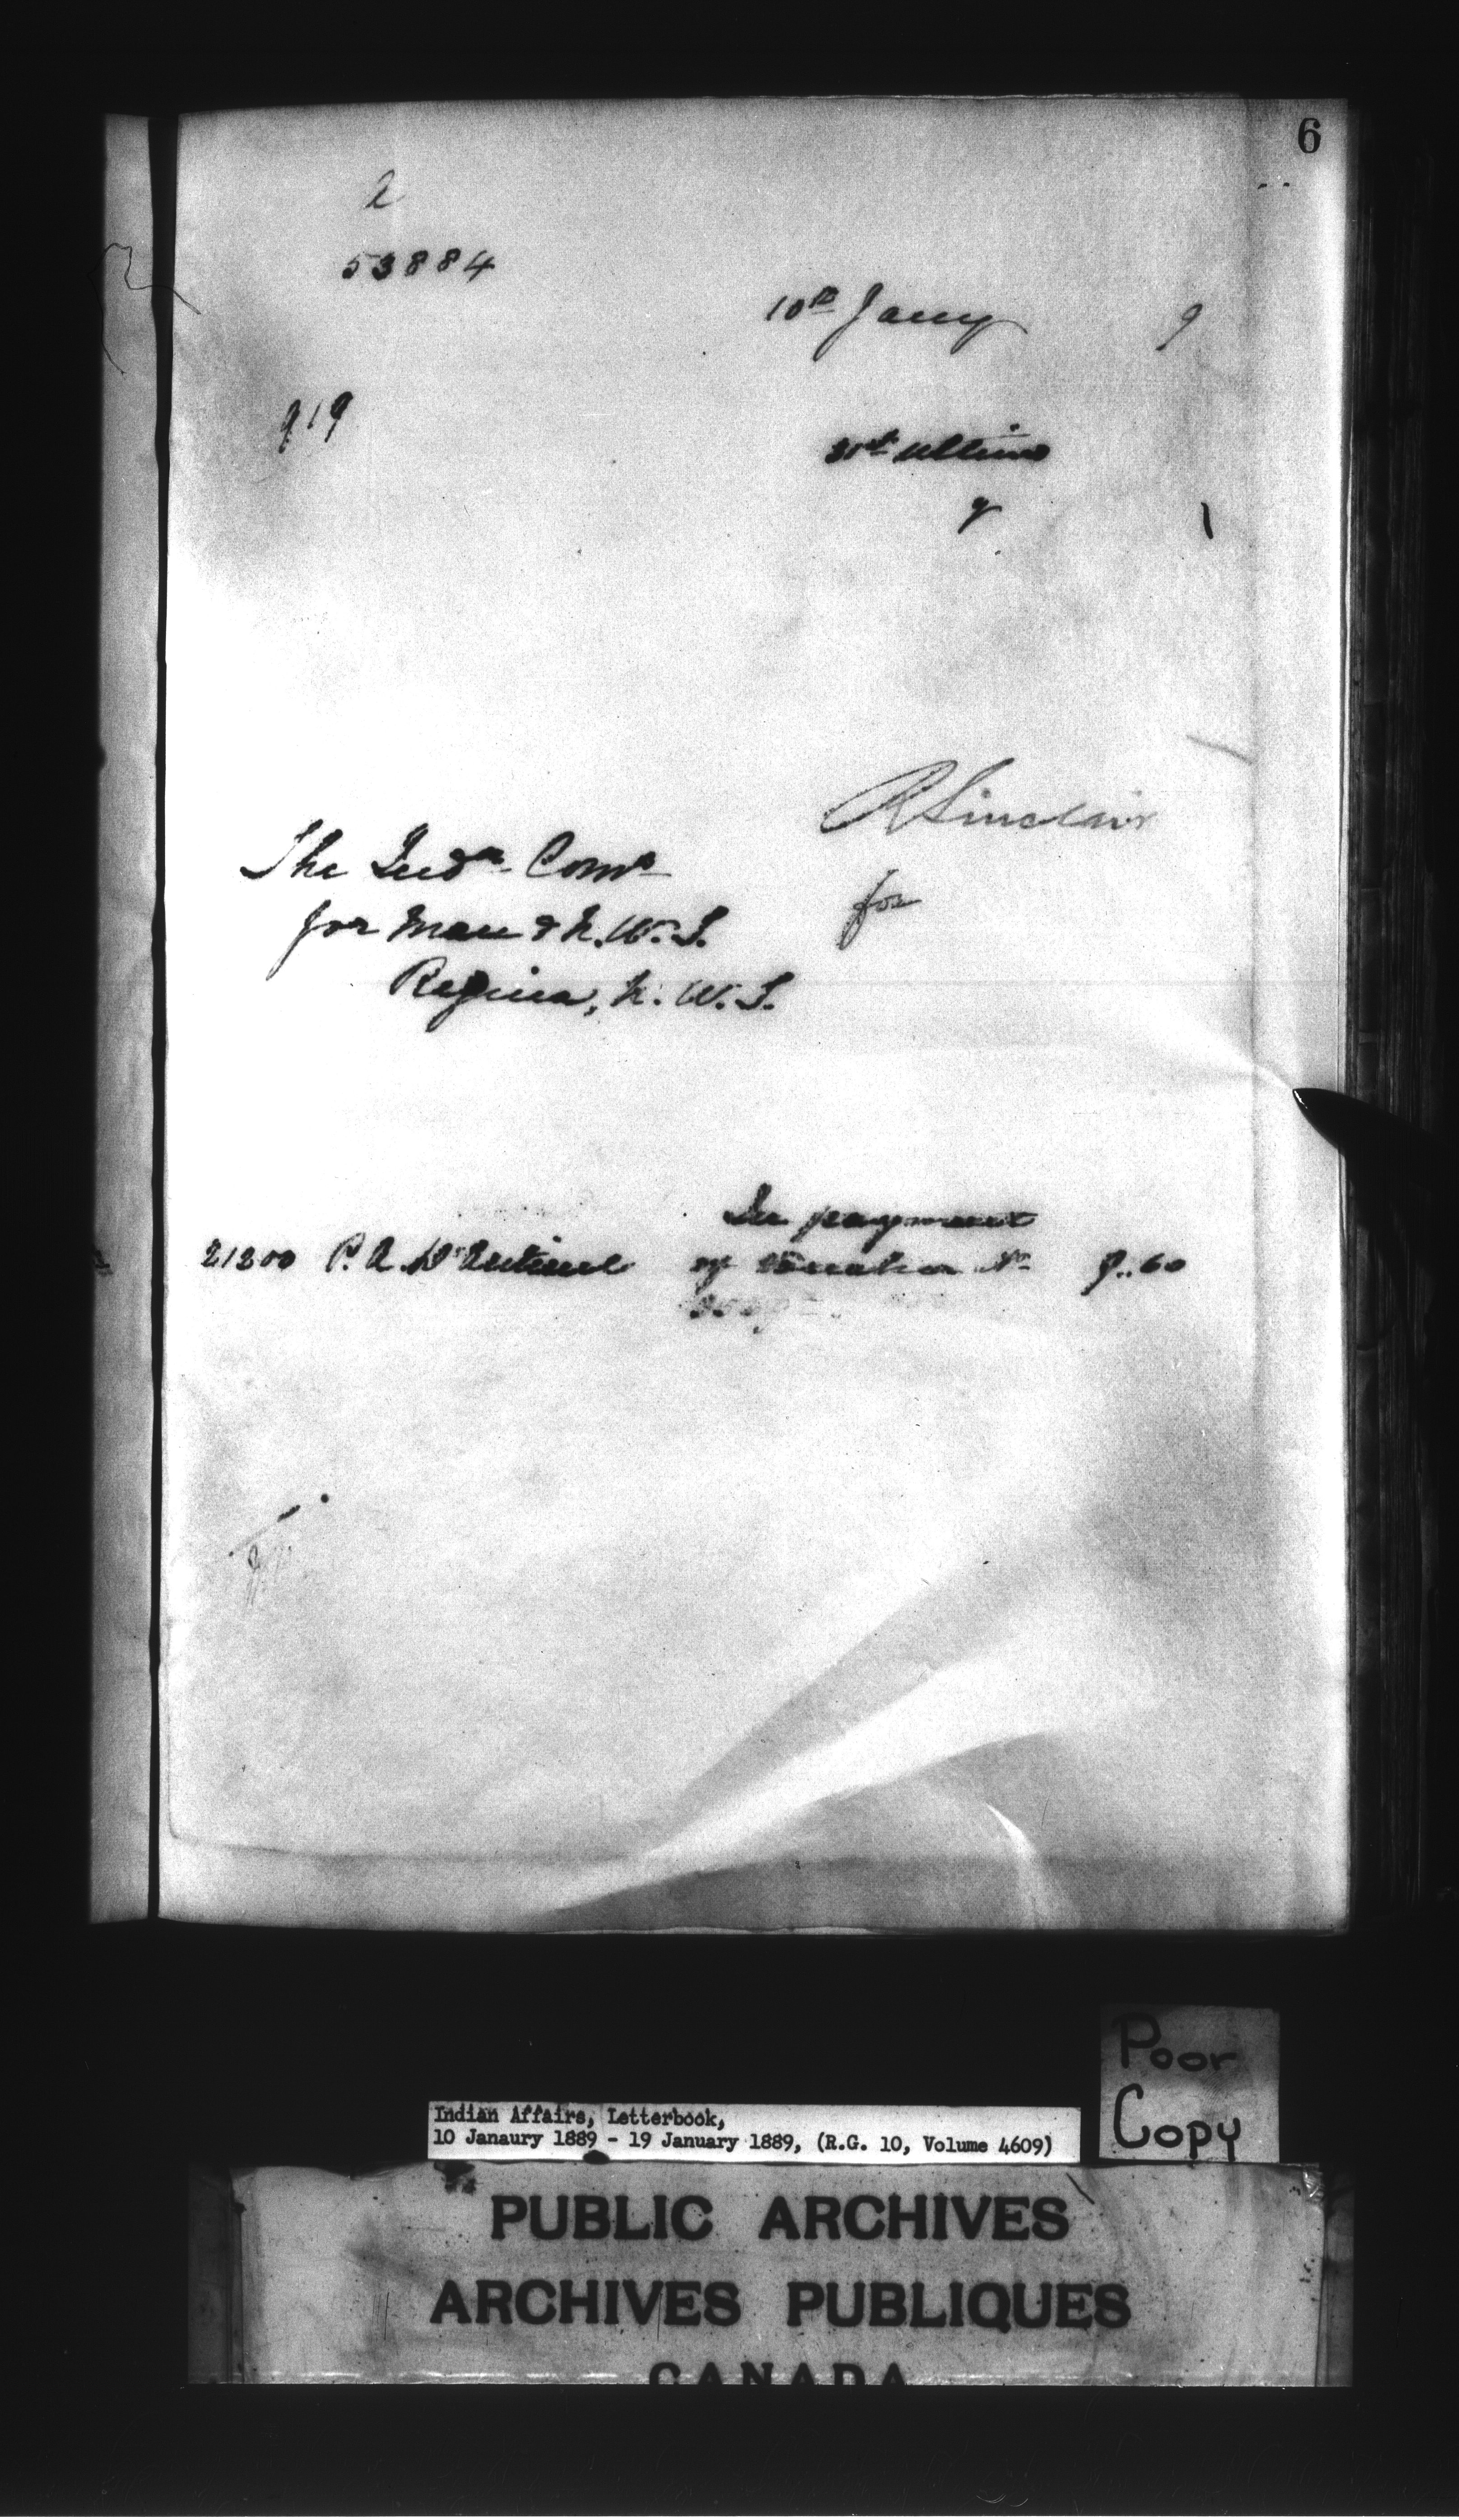 6
53884
10th Jany 9
919
31st ultimo
y
RSinclair
The Indn. Comr
for Man & N.W.T.
for
Regina, N.W.T.
In payment
21200 P.A. of No 9..60
Poor
Copy
Indian Affairs, Letterbook,
10 Janaury 1889 - 19 January 1889, (R.G. 10, Volume 4609)
PUBLIC ARCHIVES
ARCHIVES PUBLIQUES
CANADA